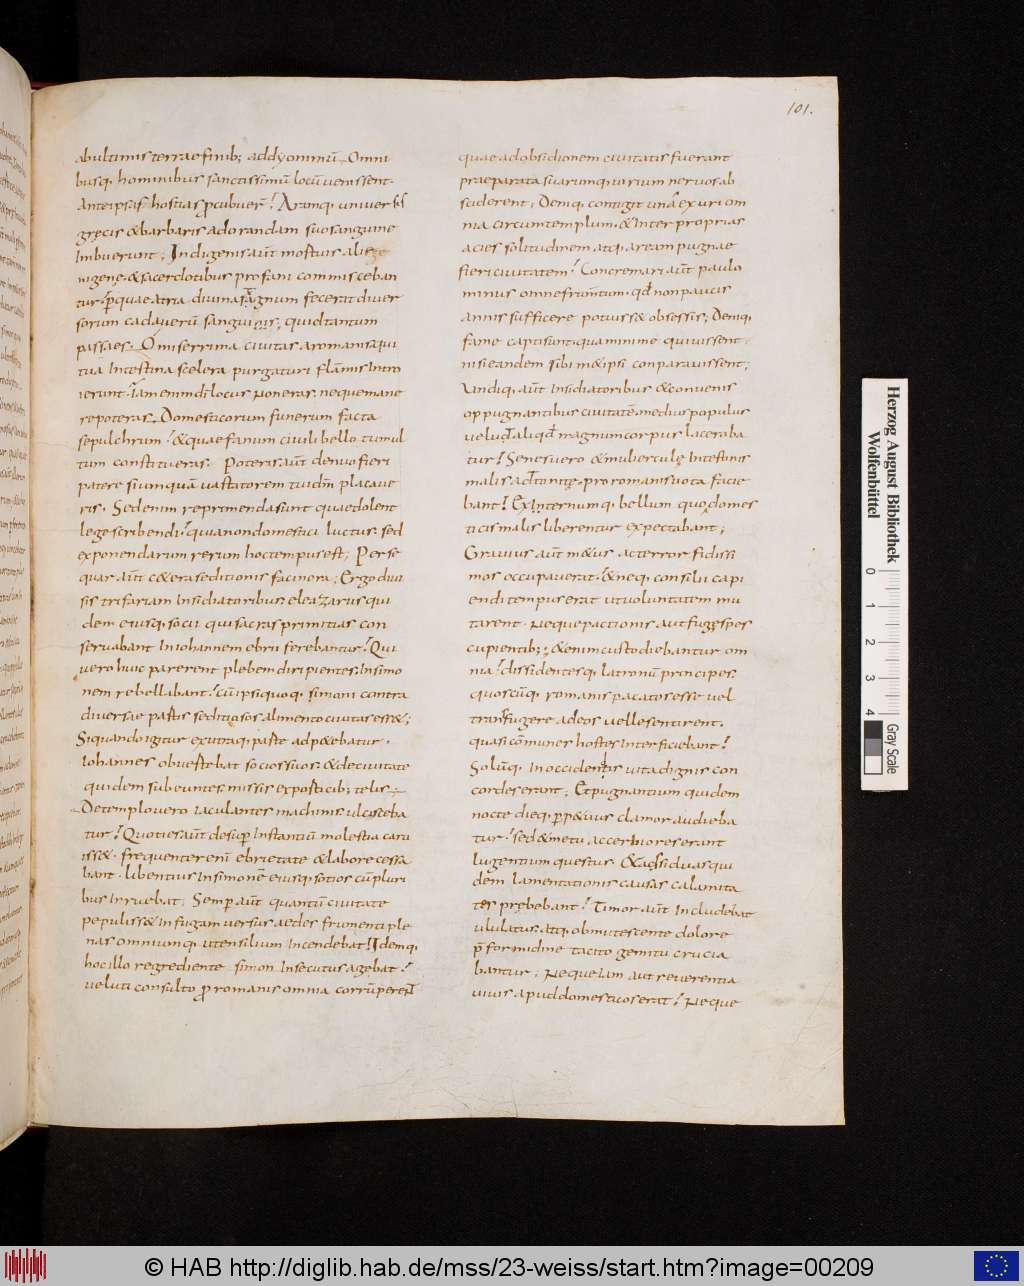 101.
abultimis terrae finib; addyominū. Omni
busq. hominibus sanctissimū locū venissent.
Ante ipsas hostias ꝓcubuer̄. Aramq. univer sis
grecis & barbaris adorandam suo sanguine
Imbuerunt; Indigenis aūt mortuis alie
nigenę. & sacerdotibus profani commisceban
tur. ꝑquae atria divina stagnum fecerat diver
sorum cadauerū sanguinis; quid tantum
passa es. O miserrima civitas a romanis a qui
tua Intestina scelera purgaturi flāmis Intro
ierunt. Iam enim dī locus Non eras. neque mane
re poteras. Domesticorum funerum facta
sepulchrum. & quae fanum civili bello tumul
tum constitueras. Poteris aūt denuo fieri
patere si umquā vastatorem tui dm̄ placave
ris. Sed enim reprimenda sunt quae dolent
lege scribendi. quia non domestici luctus. sed
exponendarum rerum hoc tempus est; Perse
quar aūt c&era seditionis facinora; Ergo diui
sis trifariam Insidiatoribus. eleazarus qui
dem eiusq. socii qui sacras primitias con
servabant In iohannem ebrii ferebantur. Qui
vero huic parerent plebem diripientes. In simo
nem rebellabant. cū ipsi quoq. simoni contra
diversae partis seditiosos alimento civitas ess&;
Si quando igitur ex utraq. parte adp&ebatur.
Iohannes obvertebat socios suos. & de civitate
quidem subeuntes missis ex porticib; telis
De templo vero iaculantes machinis ulcisceba
tur. Quoties aūt desuꝑ Instantiū molestia caru
iss&. frequenter enī ebrietate & labore cessa
bant. libentius In simonē eiusq. socios cū pluri
bus Irruebat; Semꝑ aūt quantū civitate
pepuliss& In fugam versus aedes frumenti ple
nas omniumq. utensilium Incendebat. Idemq.
hoc illo regrediente simon Insecutus agebat.
veluti consulto ꝓ romanis omnia corrūperent
quae ad obsidionem civitatis fuerant
praeparata suarumq. virium nervos ab
sciderent; Deniq. contigit una exuri om
nia circum templum. & Inter proprias
acies solitudinem atq. aream pugnae
fieri civitatem. Concremari aūt paulo
minus omne frumtum. qd̄ non paucis
annis sufficere potuiss& obsessis; Deniq.
fame capti sunt. qua minime quivissent.
nisi eandem sibi m&ipsi conparavissent;
Undiq. aūt Insidiatoribus & convenis
oppugnantibus civitatē. medius populus
velud aliqd̄ magnum corpus lacera ba
tur. Senes vero & mulierculę Intestinis
malis adtonitę. pro romanis vota facie
bant. Externumq. bellum quo domes
ticis malis liberentur expectabant;
Gravius aūt m&us ac terror fidissi
mos occupaverat. & neq. consilii capi
endi tempus erat ut voluntatem mu
tarent. Neque pactionis aut fugę spes
cupientib; & enim custodiebantur om
nia. dissidentesq. latronū principes.
quoscūq. romanis pacatos esse vel
transfugere ad eos velle sentirent.
quasi cōmunes hostes Interficiebant.
Solūq. In occidentis vita dignis con
cordes erant; Et pugnantium quidem
nocte dieq. ꝑp&uus clamor audieba
tur. sed & metu acerbiores erant
lugentium questus. & assiduas qui
dem lamentationis causas calamita
tes prębebant. Timor aūt Includebat
ululatus. atq. obmutescente dolore
p̄ formidine tacito gemitu crucia
bantur; Neque iam aut reverentia
vivis apud domesticos erat. Neque
Herzog August Bibliothek
Wolfenbüttel
0 1 2 3 4
Gray Scale
© HAB http://diglib.hab.de/mss/23-weiss/start.htm?image=00209